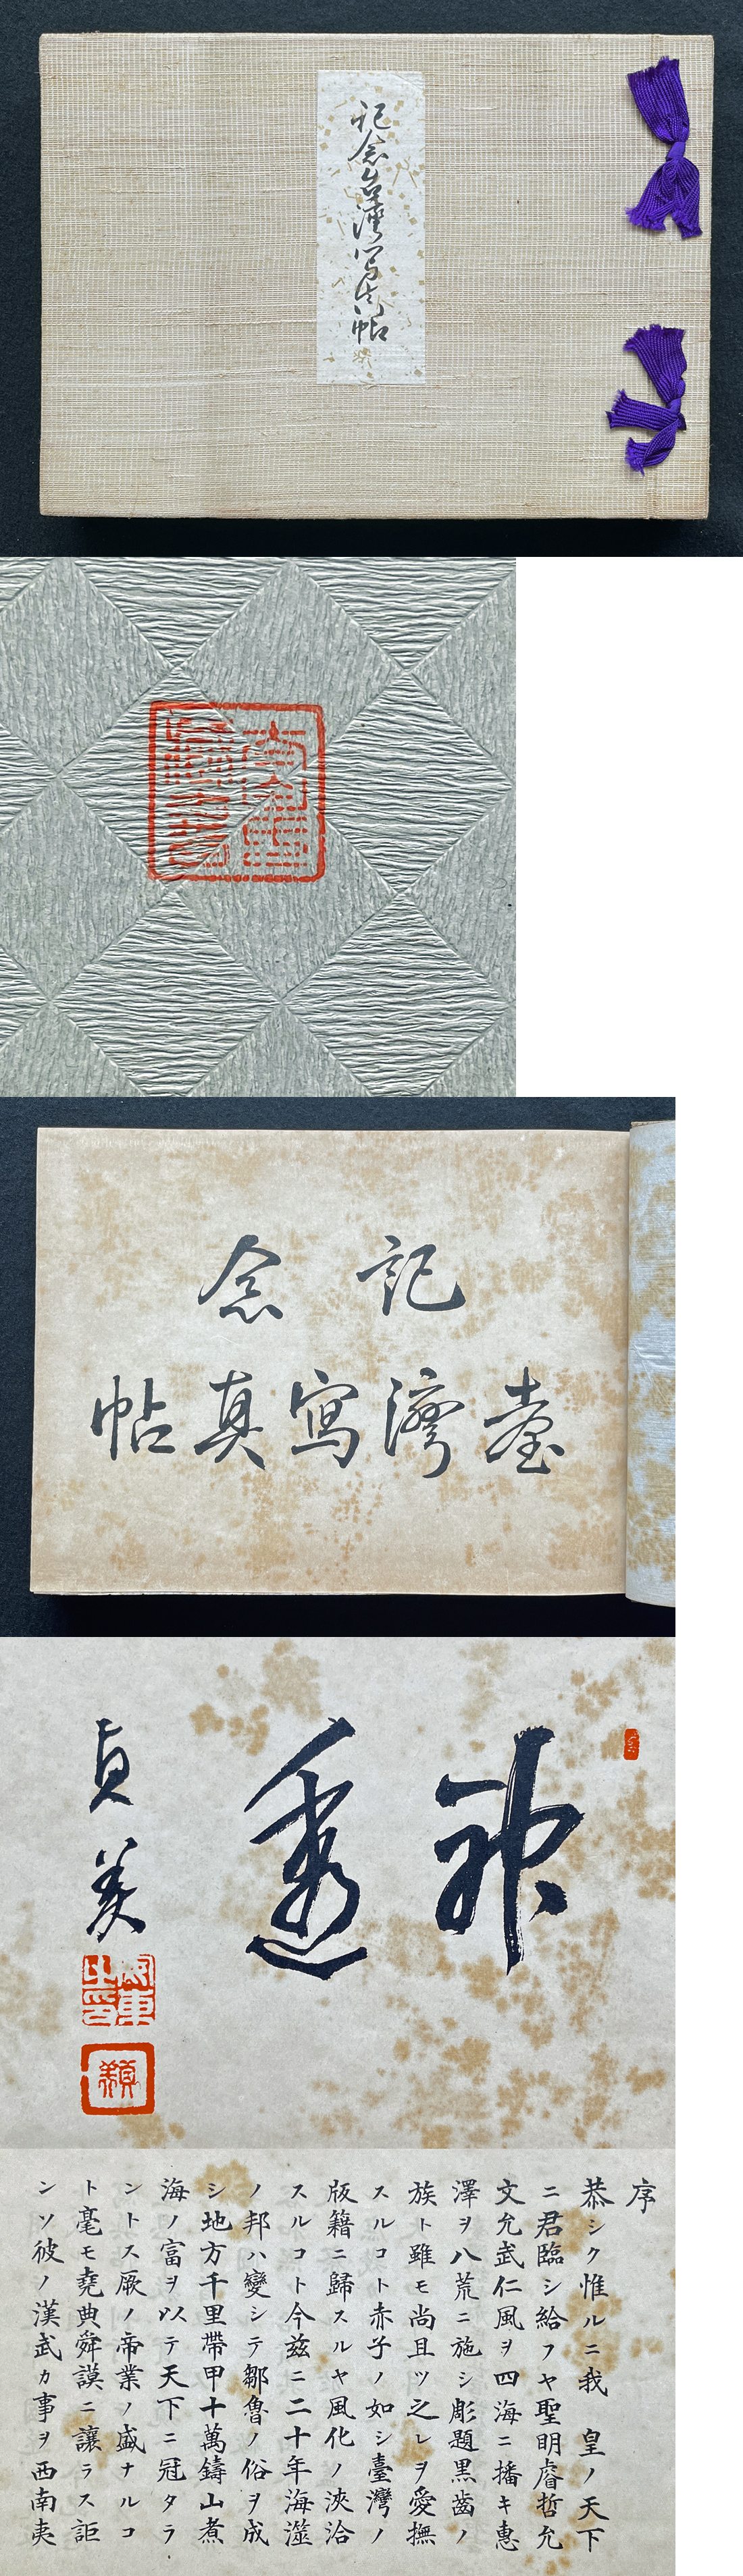 記念台湾写真帖
記念
臺灣寫真帖
神秀
貞美
序
恭シク惟ルニ我 皇ノ天下
ニ君臨シ給フヤ聖明睿哲允
文允武仁風ヲ四海ニ播キ惠
澤ヲ八荒ニ施シ彫題黒齒ノ
族ト雖モ尚且ツ之レヲ愛撫
スルコト赤子ノ如シ臺灣ノ
版籍ニ歸スルヤ風化ノ浹洽
スルコト今玆ニ二十年海澨
ノ邦ハ變シテ鄒魯ノ俗ヲ成
シ地方千里帶甲十萬鑄山煮
海ノ富ヲ以テ天下ニ冠タラ
ントス厥ノ帝業ノ盛ナルコ
ト毫モ堯典舜謨ニ讓ラス詎
ンソ彼ノ漢武カ事ヲ西南夷